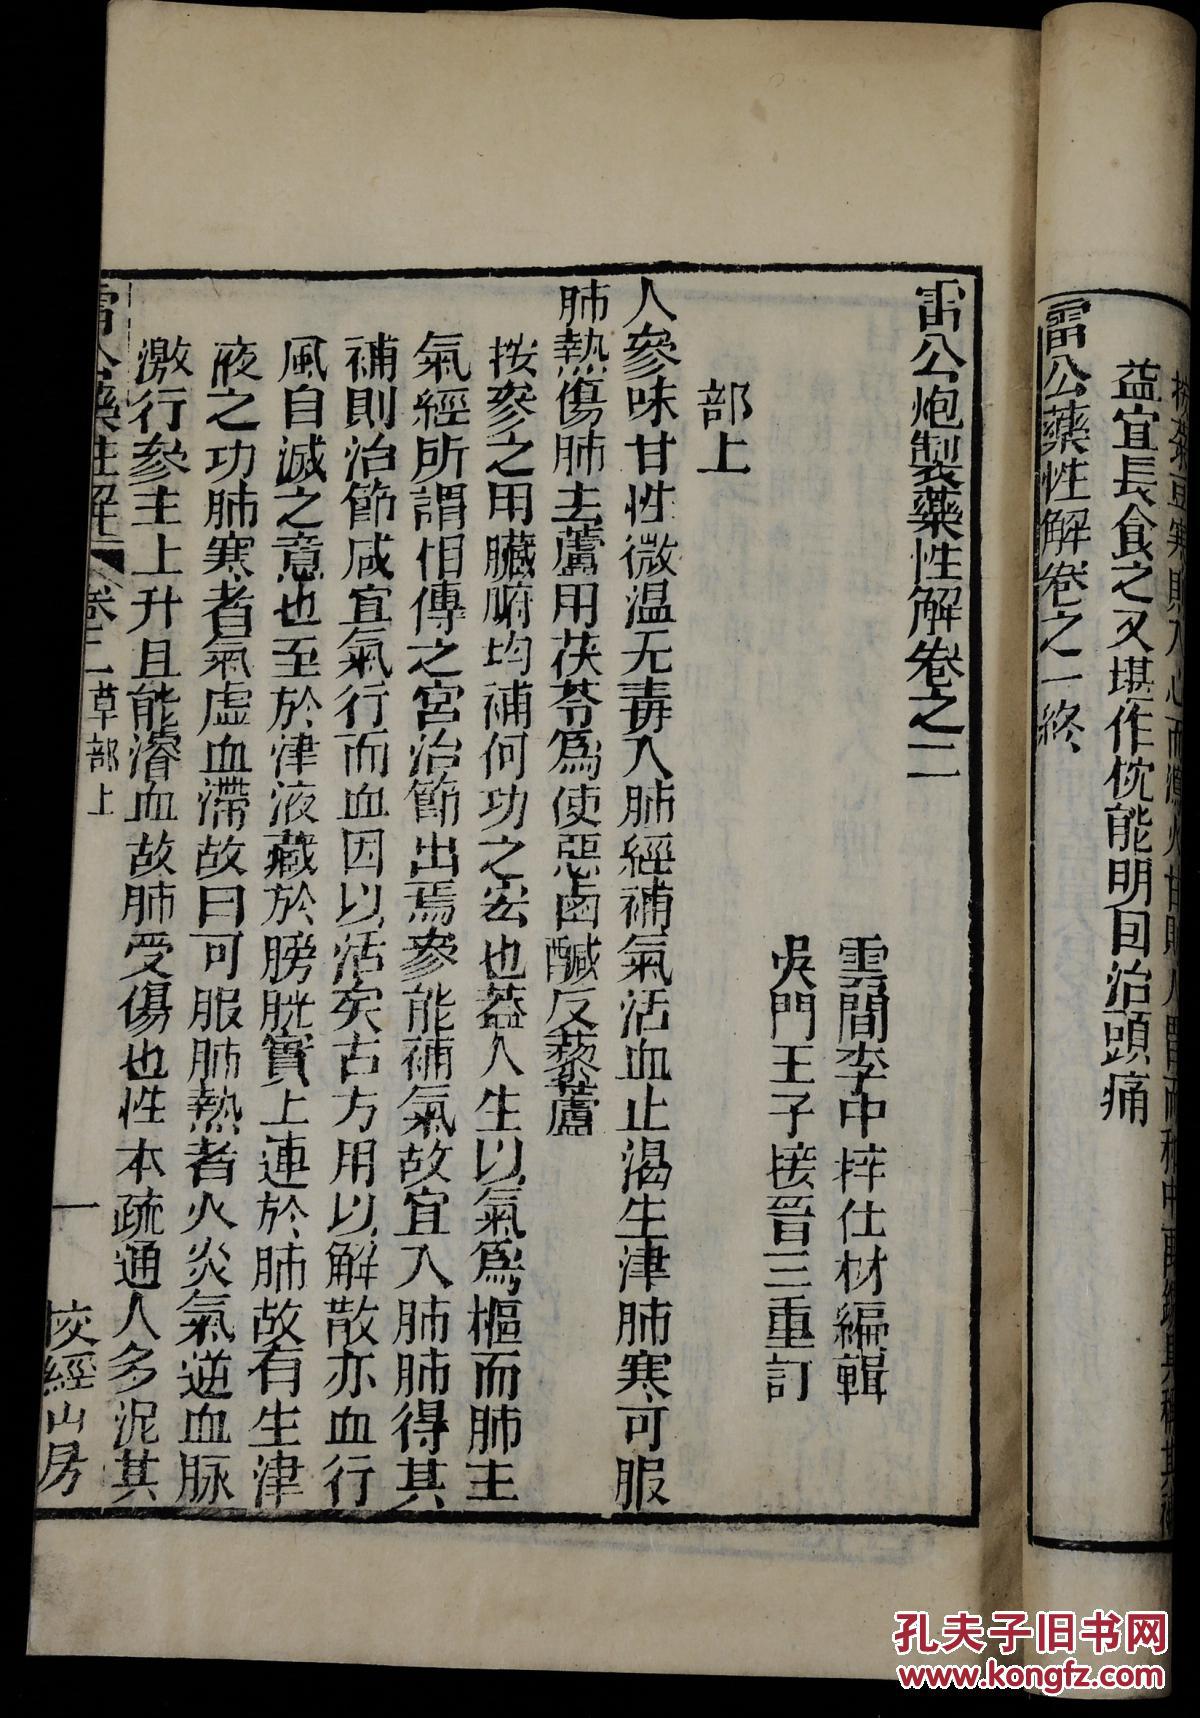 益宜長食之又堪作枕能明目治頭痛
雷公藥性解卷之一終
雷公炮製藥性解卷之二
雲間李中梓仕材編輯
吳門王子接晉三重訂
部上
人參味甘性微温无毒入肺經補氣活血止渴生津肺寒可服
肺熱傷肺去蘆用茯苓爲使惡鹵鹹反藜蘆
按參之用臟腑均補何功之宏也蓋人生以氣爲樞而肺主
氣經所謂相傳之宮治節出焉參能補氣故宜入肺肺得其
補則治節咸宜氣行而血因以活矣古方用以解散亦血行
風自滅之意也至於津液藏於膀胱實上連於肺故有生津
液之功肺寒者氣虛血滯故曰可服肺熱者火炎氣逆血脉
激行參主上升且能濬血故肺受傷也性本疏通人多泥其
雷公藥性解 卷二 草部上 一 校經山房
孔夫子旧书网
www.kongfz.com